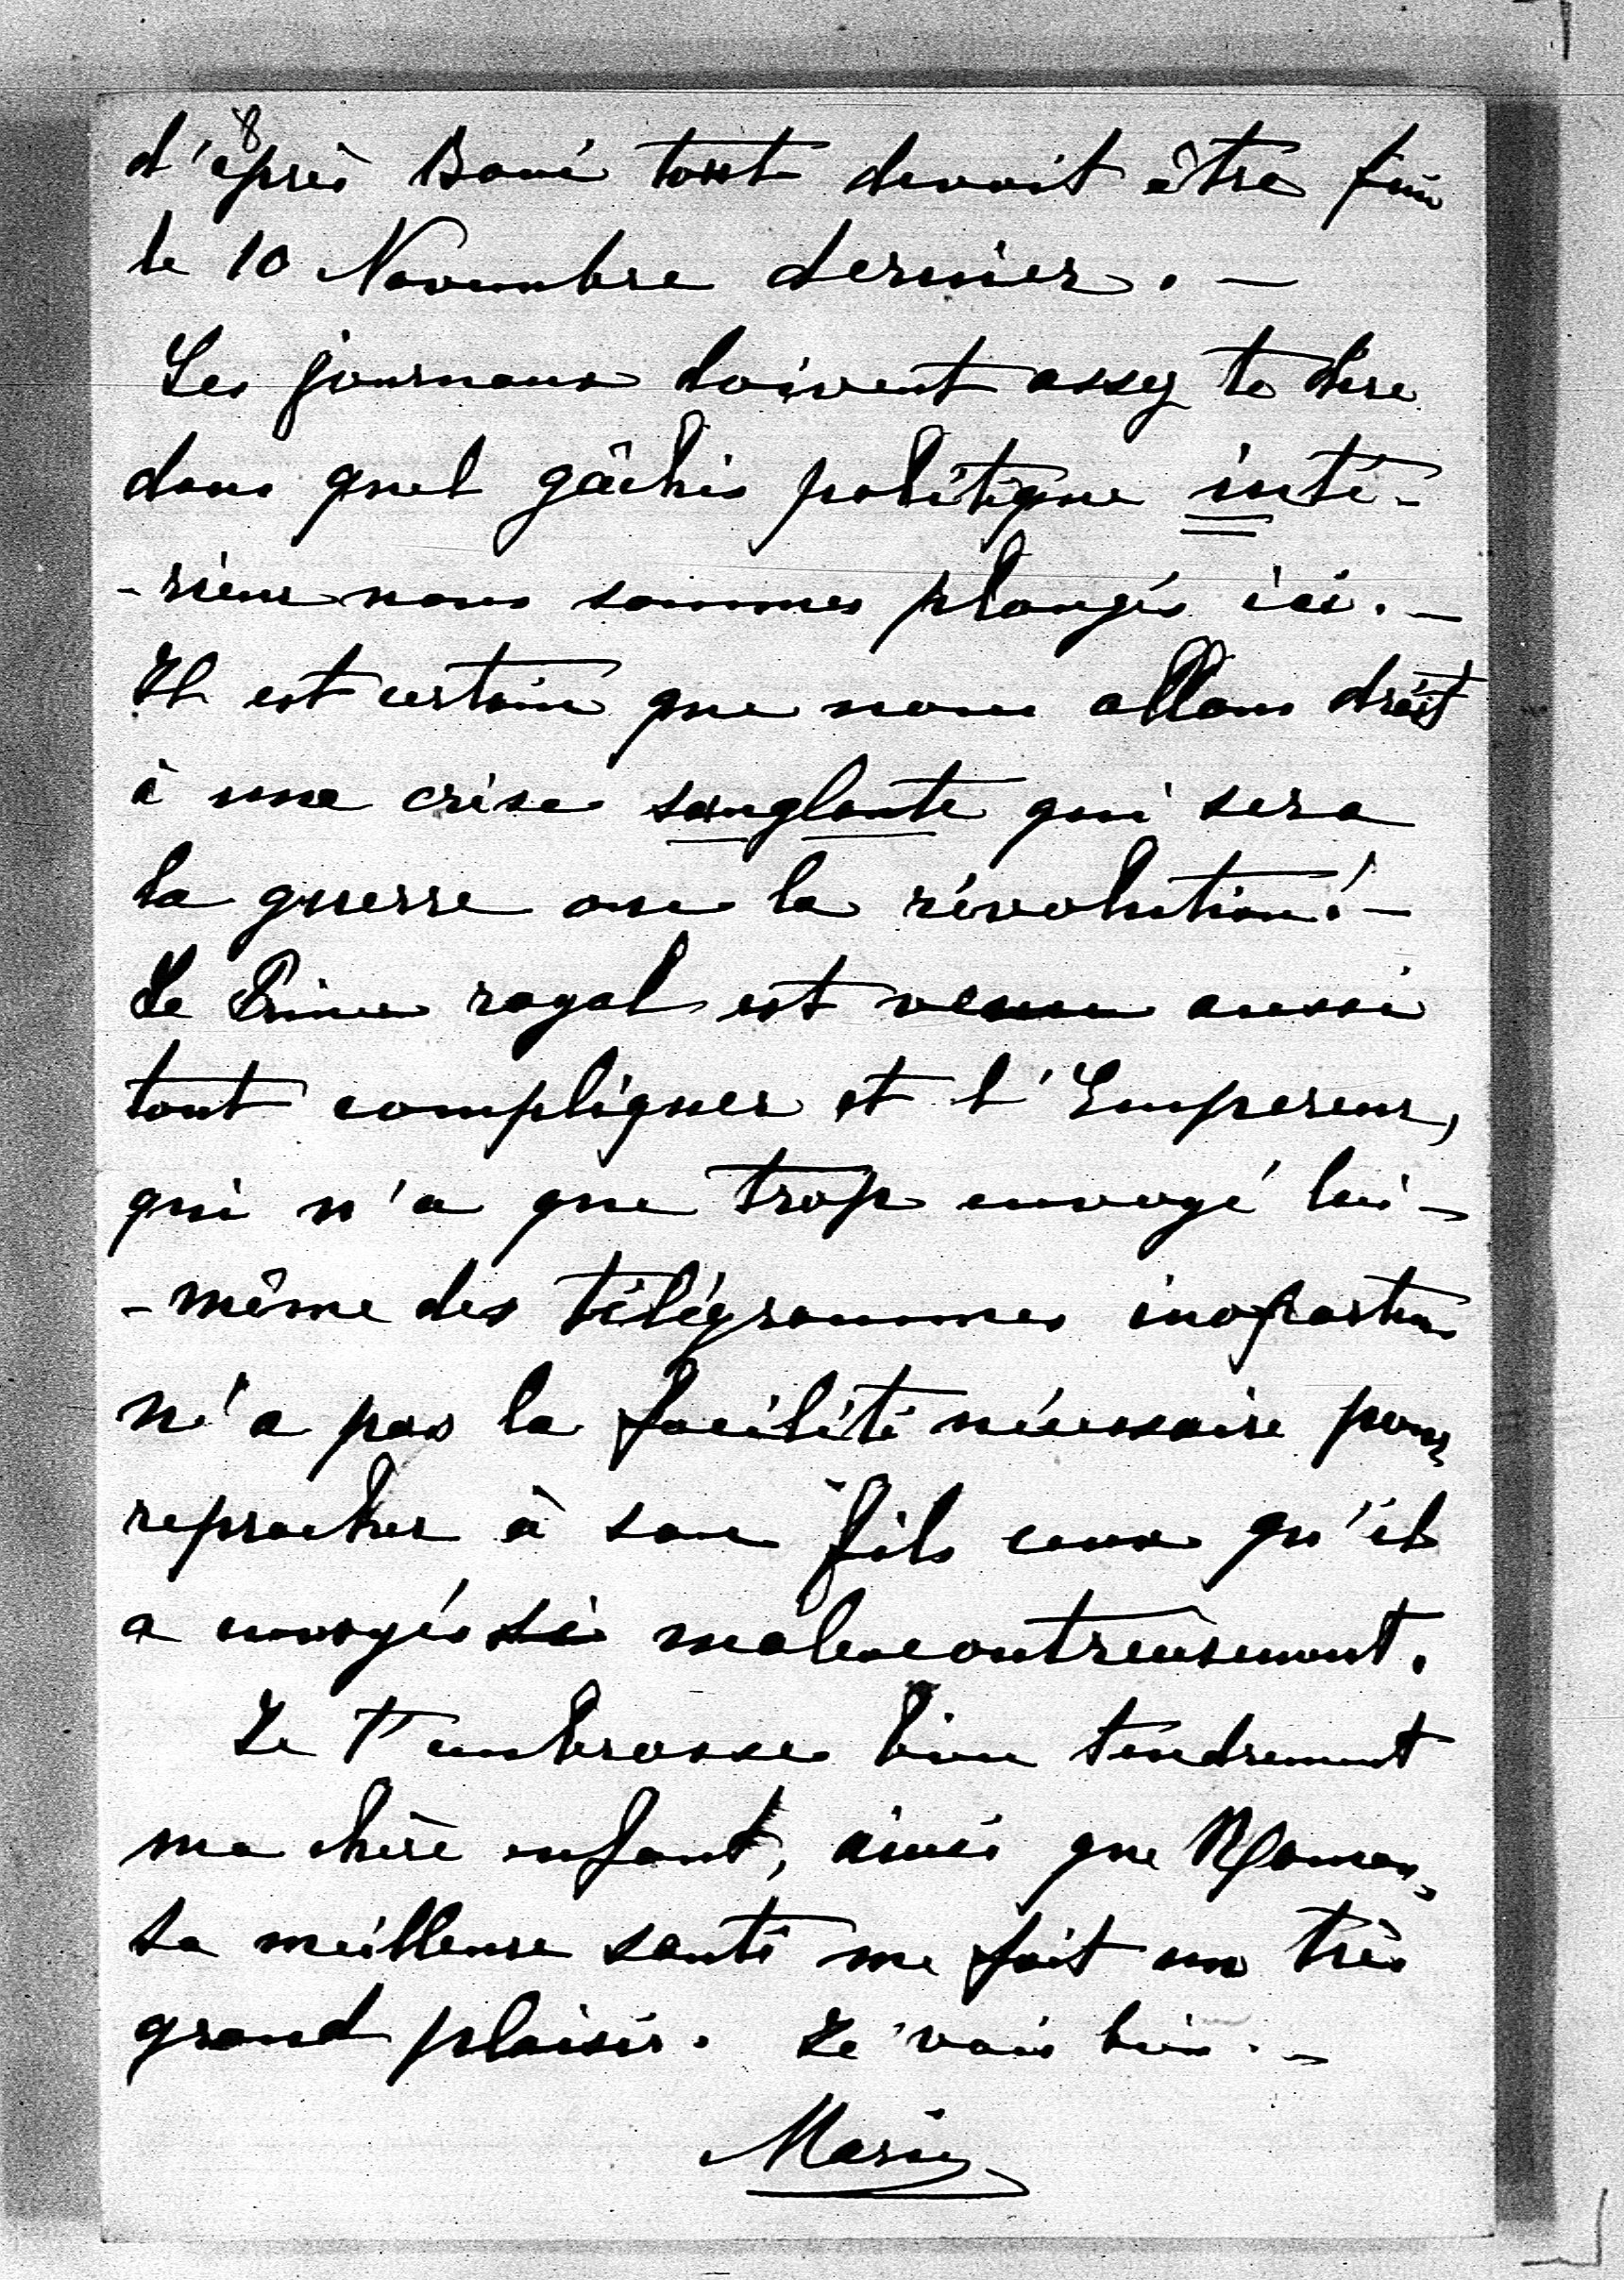 8
d'après Boni tout devait être fini
le 10 Novembre dernier. —
Les journaux doivent assez te dire
dans quel gâchis politique inté-
-rieur nous sommes plongés ici. —
Il est certain que nous allons droit
à une crise sanglante qui sera
la guerre ou la révolution! —
Le Prince royal est venu aussi
tout compliquer et l'Empereur,
qui n'a que trop envoyé lui-
-même des télégrammes inopportuns
n'a pas la facilité nécessaire pour
reprocher à son fils ceux qu'il
a envoyés si malencontreusement.
Je t'embrasse bien tendrement
ma chère enfant, ainsi que
Sa meilleure santé me fait un très
grand plaisir. Je vais bien. —
Marie